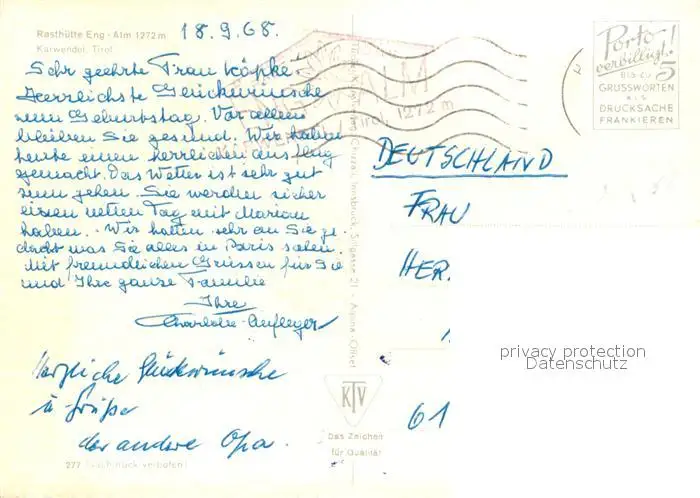 Rasthütte Eng - Alm 1272 m
Karwendel, Tirol
18.9.68.
Sehr geehrte Frau Köpke.
Herrlichste Glückwünsche
zum Geburtstag. Vor allem
bleiben Sie gesund. Wir haben
heute einen herrlichen Ausflug
gemacht. Das Wetter ist sehr gut
zum gehen. Sie werden sicher
einen netten Tag mit Marion
haben. Wir hatten sehr an Sie ge-
dacht was Sie alles in Paris sehen.
Mit freundlichen Grüssen für Sie
und Ihre ganze Familie
Ihre
Charlotte
Herzliche Glückwünsche
u Grüße
der andere Opa.
277
Innsbruck, Sillgasse 21
KTV
Das Zeichen
für Qualität
ALM
Tirol, 1272 m
Porto
verbilligt!
5
BIS ZU
GRUSSWORTEN
ALS
DRUCKSACHE
FRANKIEREN
DEUTSCHLAND
FRAU
HER.
61
privacy protection
Datenschutz